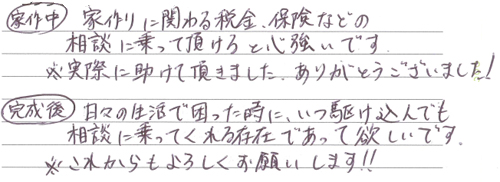 家作中 家作りに関わる税金、保険などの
相談に乗って頂けると心強いです.
※実際に助けて頂きました. ありがとうございました!
完成後 日々の生活で困った時に、いつ駆け込んでも
相談に乗ってくれる存在であって欲しいです.
※これからもよろしくお願いします!!